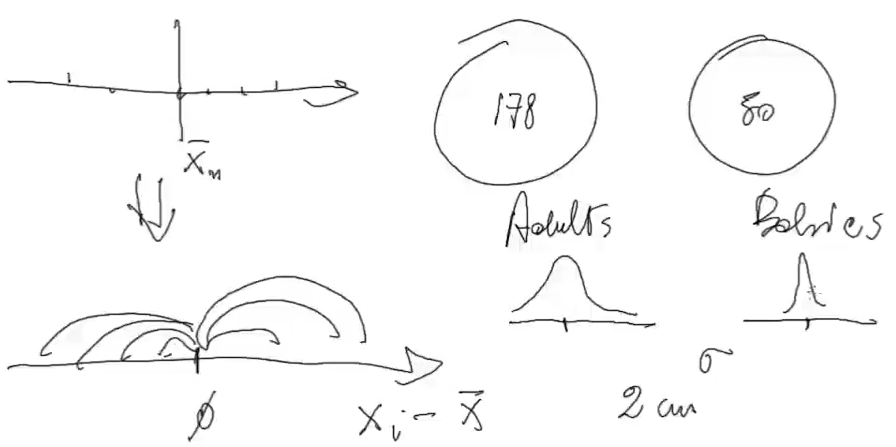 x̄ₙ
178
50
Adults
Babies
∅
xᵢ - x̄
2 cm
σ